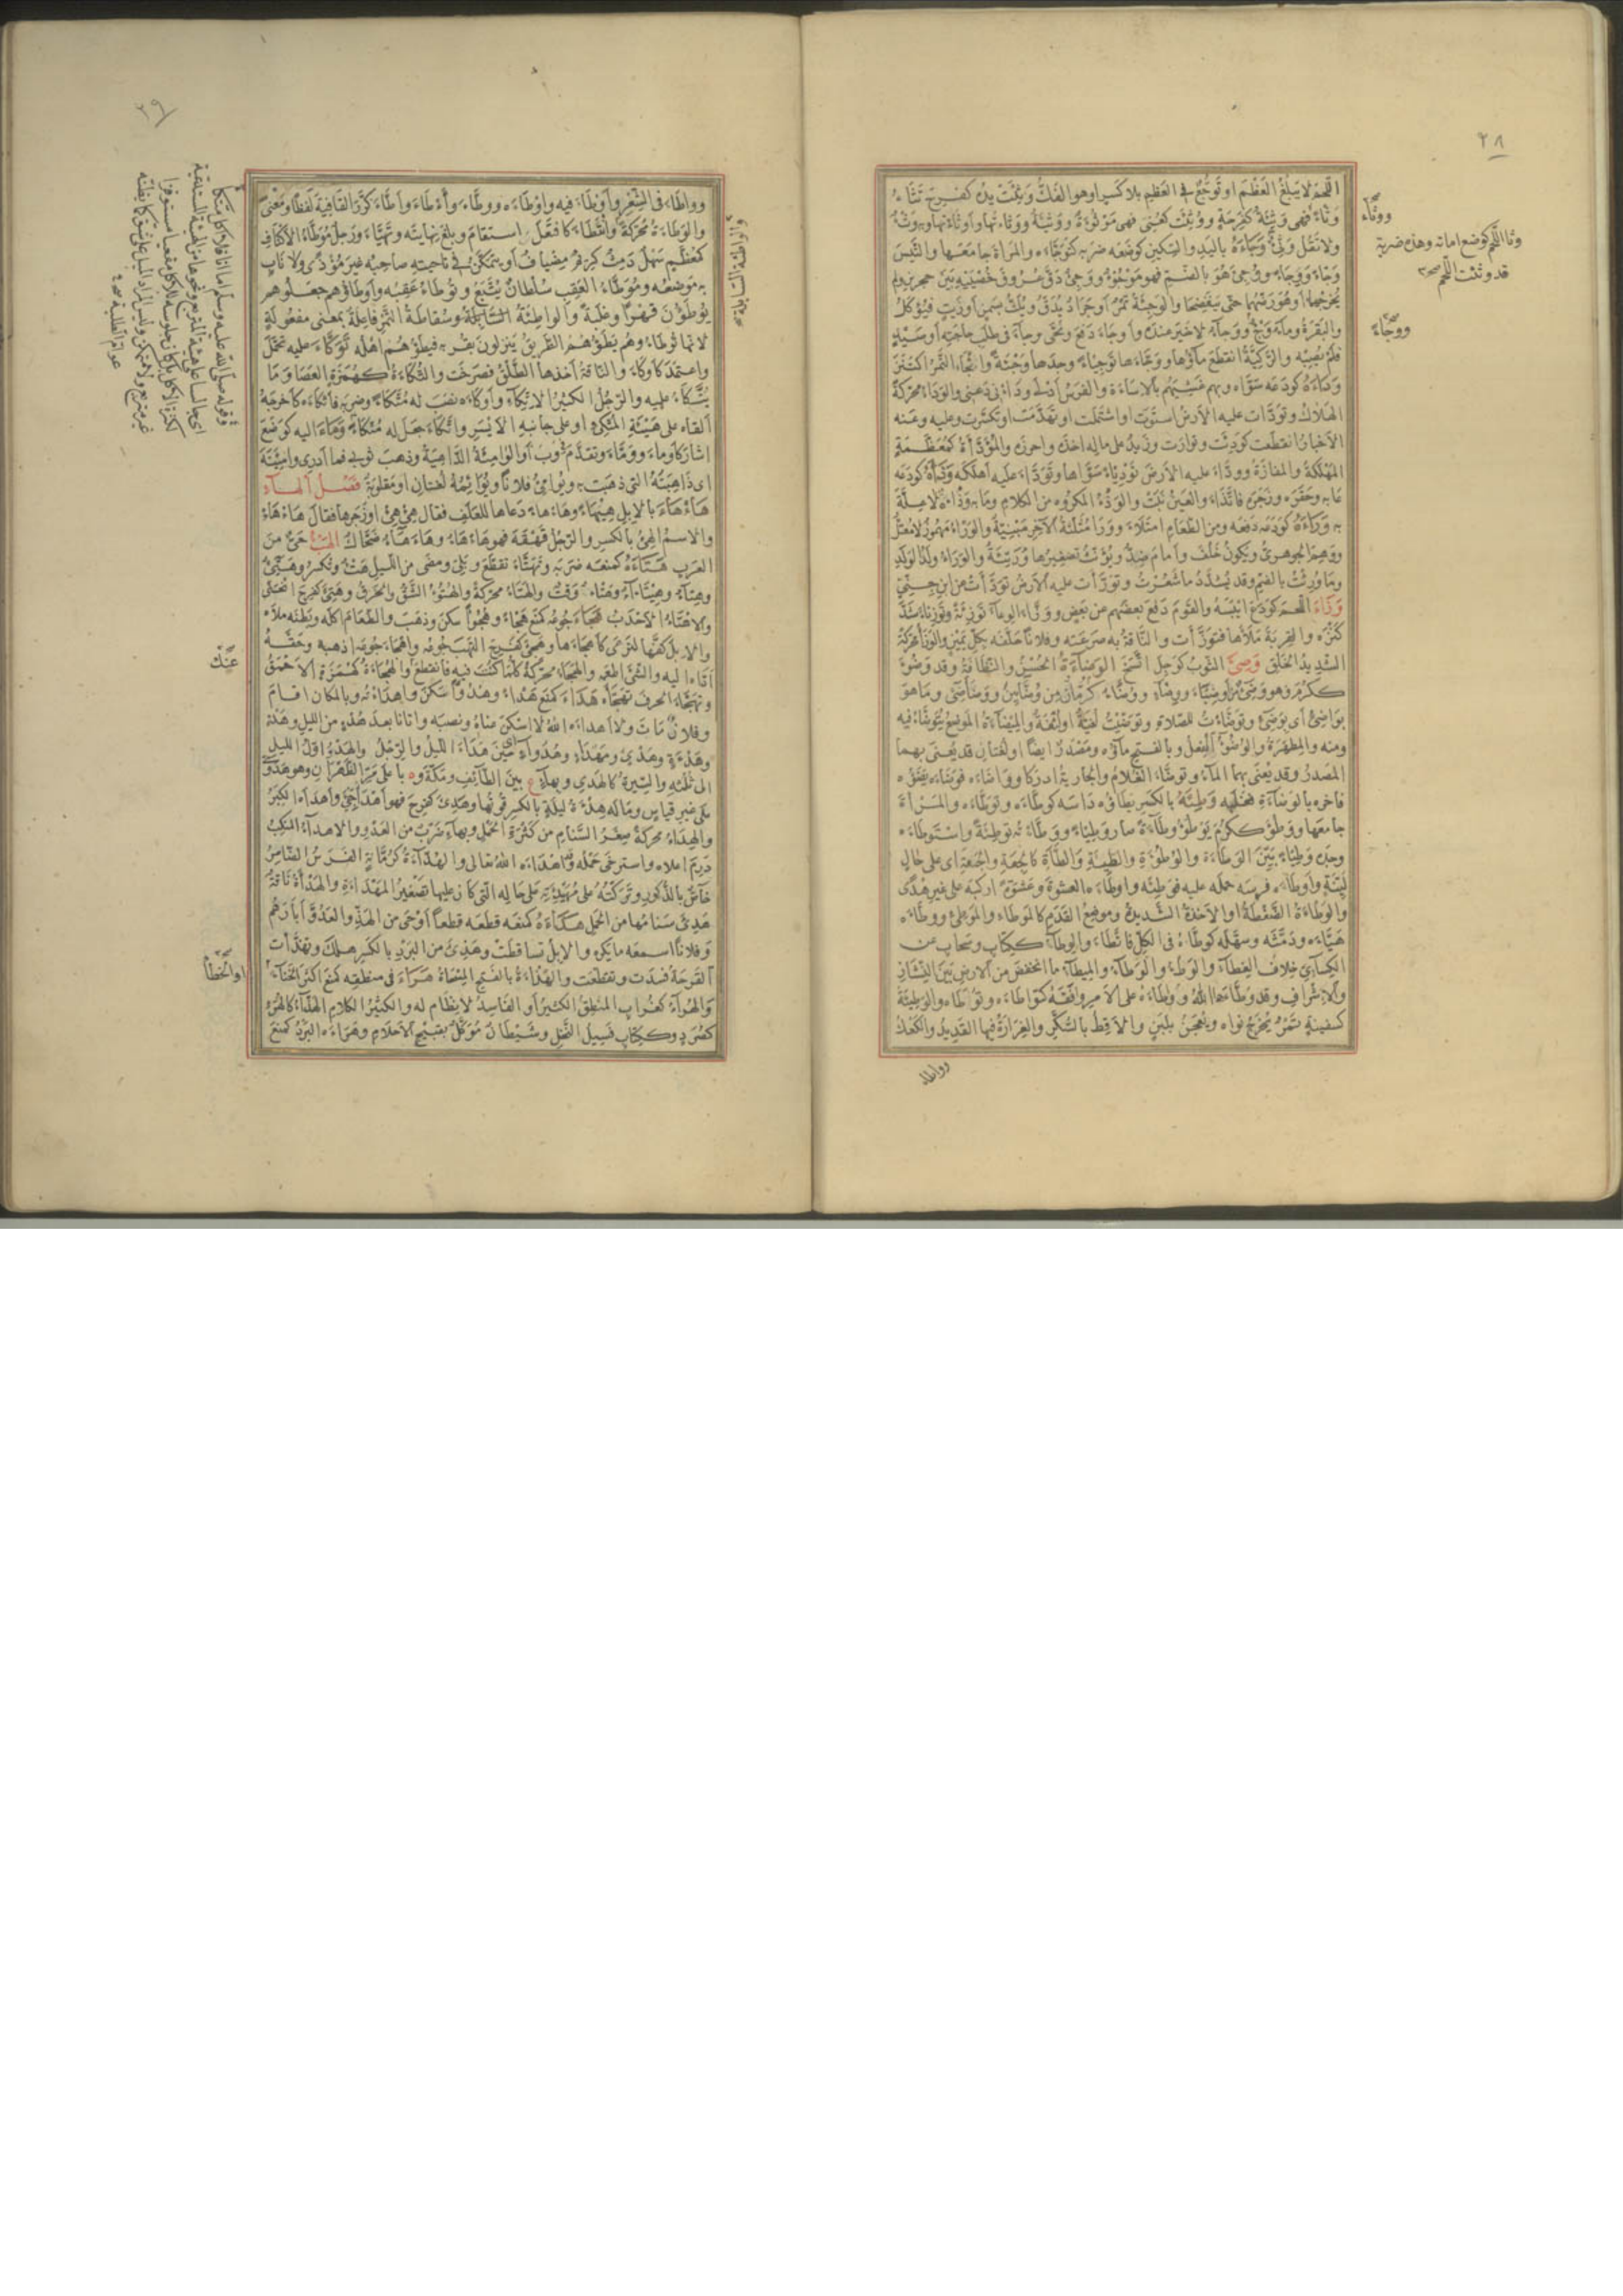 ٢٨
اللحم لا يبلغ العظم او توجع فى العظم بلا كسر او هو الفك وثئت يده كفرح تثأ
وثأ فهى وثئة كفرحة ووثئت كعنى فهى موثوءة ووثيئة ووثأتها واوثأتها وبه وثء
ولا تقل وثى وجأه باليد والسكين كوضعه ضربه كتوجأه والمرأة جامعها والتيس
وجأ ووجاء ووجئ هو بالضم فهو موجوء ووجئ دق عروق خصيتيه بين حجرين ولم
يخرجهما او هو رضهما حتى ينفضخا والوجيئة تمر او جراد يدق ويلت بسمن او زيت فيؤكل
والبقرة وماء وجء ووجأ لا خير عنده واوجأ دفع ونحى وجاء فى طلب حاجته او صيد
فلم يصبه والركية انقطع ماؤها ووجأها توجيئا وجدها وجئة واتجأ التمر اكتنز
ودأه كودعه سواه وبهم غشيهم بالاساءة والفرس ادلى ودأنى دعنى والودأ محركة
الهلاك وتودأت عليه الارض استوت او اشتملت او تهدمت او تكسرت وعليه وعنه
الاخبار انقطعت كودئت وتوارت وزيد على ماله اخذه واحرزه والمودأة كمعظمة
المهلكة والمفازة وودأ عليه الارض توديئا سواها وتودأ عليه اهلكه وذأه كودعه
عابه وحقره وزجره فاتذأ والعين نبت والوذء المكروه من الكلام وما به وذأة لا علة
به ورأه كودعه دفعه ومن الطعام امتلأ ووراء مثلثة الاخر مبنية والوراء مهموز لا معتل
ووهم الجوهرى ويكون خلف وامام ضد ويؤنث تصغيرها وريئة والوراء ولد الولد
وما ورئت بالضم وقد يشدد ما شعرت وتورأت عليه الارض تودأت عن ابن جنى
وزأ اللحم كودع ايبسه والقوم دفع بعضهم عن بعض ووزأ الوعاء توزئة وتوزيئا شد
كنزه والقربة ملأها فتوزأت والناقة به صرعته وفلانا حلفه بكل يمين والوزأ محركة
الشديد الخلق وصئ الثوب كوجل اتسخ الوضاءة الحسن والنظافة وقد وضؤ
ككرم وهو وضئ من اوضياء ووضاء ووضاء كرمان من وضائين ووضاضئ وما هو
بواضئ اى بوضئ وتوضأت للصلاة وتوضيت لغية او لثغة والميضأة الموضع يتوضأ فيه
ومنه والمطهرة والوضوء الفعل وبالفتح ماؤه ومصدر ايضا او لغتان قد يعنى بهما
المصدر وقد يعنى بهما الماء وتوضأ الغلام والجارية ادركا وواضأه فوضأه يضؤه
فاخره بالوضاءة فغلبه وطئه بالكسر يطأه داسه كوطأه وتوطأه والمرأة
جامعها ووطؤ ككرم يوطؤ وطاءة صار وطيئا ووطأته توطئة واستوطأه
وجده وطيئا بين الوطاءة والوطوءة والطئة والطأة كالجعة والجعة اى على حال
لينة واوطأه فرسه حمله عليه فوطئه واوطأه العشوة وعشوة اركبه على غير هدى
والوطأة الضغطة او الاخذة الشديدة وموضع القدم كالموطأ والموطئ ووطأه
هيأه ودمثه وسهله كوطأه فى الكل فاتطأ والوطاء ككتاب وسحاب عن
الكسائى خلاف الغطاء والوطء والوطاء والميطاء ما انخفض من الارض بين النشاز
والاشراف وقد وطأها الله وواطأه على الامر وافقه كتواطأه وتوطأه والوطيئة
كسفينة تمر يخرج نواه ويعجن بلبن والاقط بالسكر والغرارة فيها القديد والكعك
وواطأ
ووثأ صح
وثأ اللحم كوضع اماته وهذه ضربة
قد وثئت اللحم صح
ووجأ صح
٢٩
وواطأ فى الشعر واوطأ فيه واوطأه ووطأ واءطأ واطأ كرر القافية لفظا ومعنى
والوطأة محركة واتطأ كافتعل استقام وبلغ نهايته وتهيأ ورجل موطأ الاكناف
كمعظم سهل دمث كريم مضياف او يتمكن فى ناحيته صاحبه غير مؤذى ولا ناب
به موضعه وموطأ العقب سلطان يتبع وتوطأ عقبه واوطأوهم جعلوهم
يوطؤن قهرا وغلبة والواطئة السابلة وسقاطة التمر فاعلة بمعنى مفعولة
لانها توطأ وهم يطؤهم الطريق ينزلون بقربه فيطؤهم اهله توكأ عليه تحمل
واعتمد كاوكأ والناقة اخذها الطلق فصرخت والتكأة كهمزة العصا وما
يتكأ عليه والرجل الكثير الاتكاء واوكأه نصب له متكأ وضربه فاتكأه كاخرجه
القاه على هيئة المتكئ او على جانبه الايسر واتكأ جعل له متكأ ومأ اليه كوضع
اشار كاومأ وومأ وتقدم فى وب أ والوامئة الداهية وذهب ثوبى فما ادرى وامئته
اى ذاهبته التى ذهبت به ويوامئ فلانا ويوائمه لغتان او مقلوبة فصل الهاء
هأهأ بالابل هيهاء وهأهاء دعاها للعلف فقال هئ هئ او زجرها فقال هأ هأ
والاسم الهئ بالكسر والرجل قهقه فهو هأهأ وهأهاء ضحاك الهبء حى من
العرب هتأه كمنعه ضربه وتهتأ تقطع وبلى ومضى من الليل هتء وتكسر وهتئ
وهتاء وهيتاء وهتأة وقت والهتأ محركة والهتوء الشق والخرق وهتئ كفرح انحنى
والاهتأ الاحدب هجأ جوعه كمنع هجأ وهجوءا سكن وذهب والطعام اكله وبطنه ملأه
والابل كفها لترعى كاهجأها وهجئ كفرح التهب جوعه واهجأ جوعه اذهبه وحقه
اداه اليه والشئ اطعمه والهجأ محركة كلما كنت فيه فانقطع والهجأة كهمزة الاحمق
وتهجأ الحرف تهجاه هدأ كمنع هدءا وهدوءا سكن واهدأته وبالمكان اقام
وفلان مات ولا اهدأه الله لا اسكن عناه ونصبه واتانا بعد هدء من الليل وهدأة
وهدأة وهدئ ومهدأ وهدوء اى حين هدأ الليل والرجل والهدء اول الليل
الى ثلثه والسيرة كالهدى وبهاء ع بين الطائف ومكة وة باعلى مر الظهران وهو هدوى
على غير قياس وماله هدأة ليلة بالكسر قوتها وهدئ كفرح فهو اهدأ جنئ واهدأه الكبر
والهدأ محركة صغر السنام من كثرة الحمل وبهاء ضرب من العدو والاهدأ المنكب
درم اعلاه واسترخى حمله وقد اهدأه الله تعالى والهدأة كرمانة الفرس الضامر
خاص بالذكور وتركته على مهيدئته على حاله التى كان عليها تصغير المهدأة والهدأة ناقة
هدئ سنامها من الحمل هذأه كمنعه قطعه قطعا اوحى من الهذ والعدو ابارهم
وفلانا اسمعه ما يكره والابل تساقطت وهذئ من البرد بالكسر هلك وتهذأت
القرحة فسدت وتقطعت والهذأة بالفتح المسحاة هرأ فى منطقه كمنع اكثر الخنا
والهراء كغراب المنطق الكثير او الفاسد لا نظام له والكثير الكلام الهذاء كالهرء
كصرد وككتاب فسيل النخل وشيطان موكل بقبيح الاحلام وهرأه البرد كمنع
والواطئة السابلة صح
وقوله صلى الله عليه وسلم اما انا فلا اكل متكأ
اى جالسا على هيئة المتربع ونحوها من الهيئة المستدعية
لكثرة الاكل بل كان جلوسه للاكل مقعيا مستوفزا
غير متربع ولا متمكن وليس المراد الميل على شق كما يظنه
عوام الطلبة صح
عنك صح
او الخطأ صح